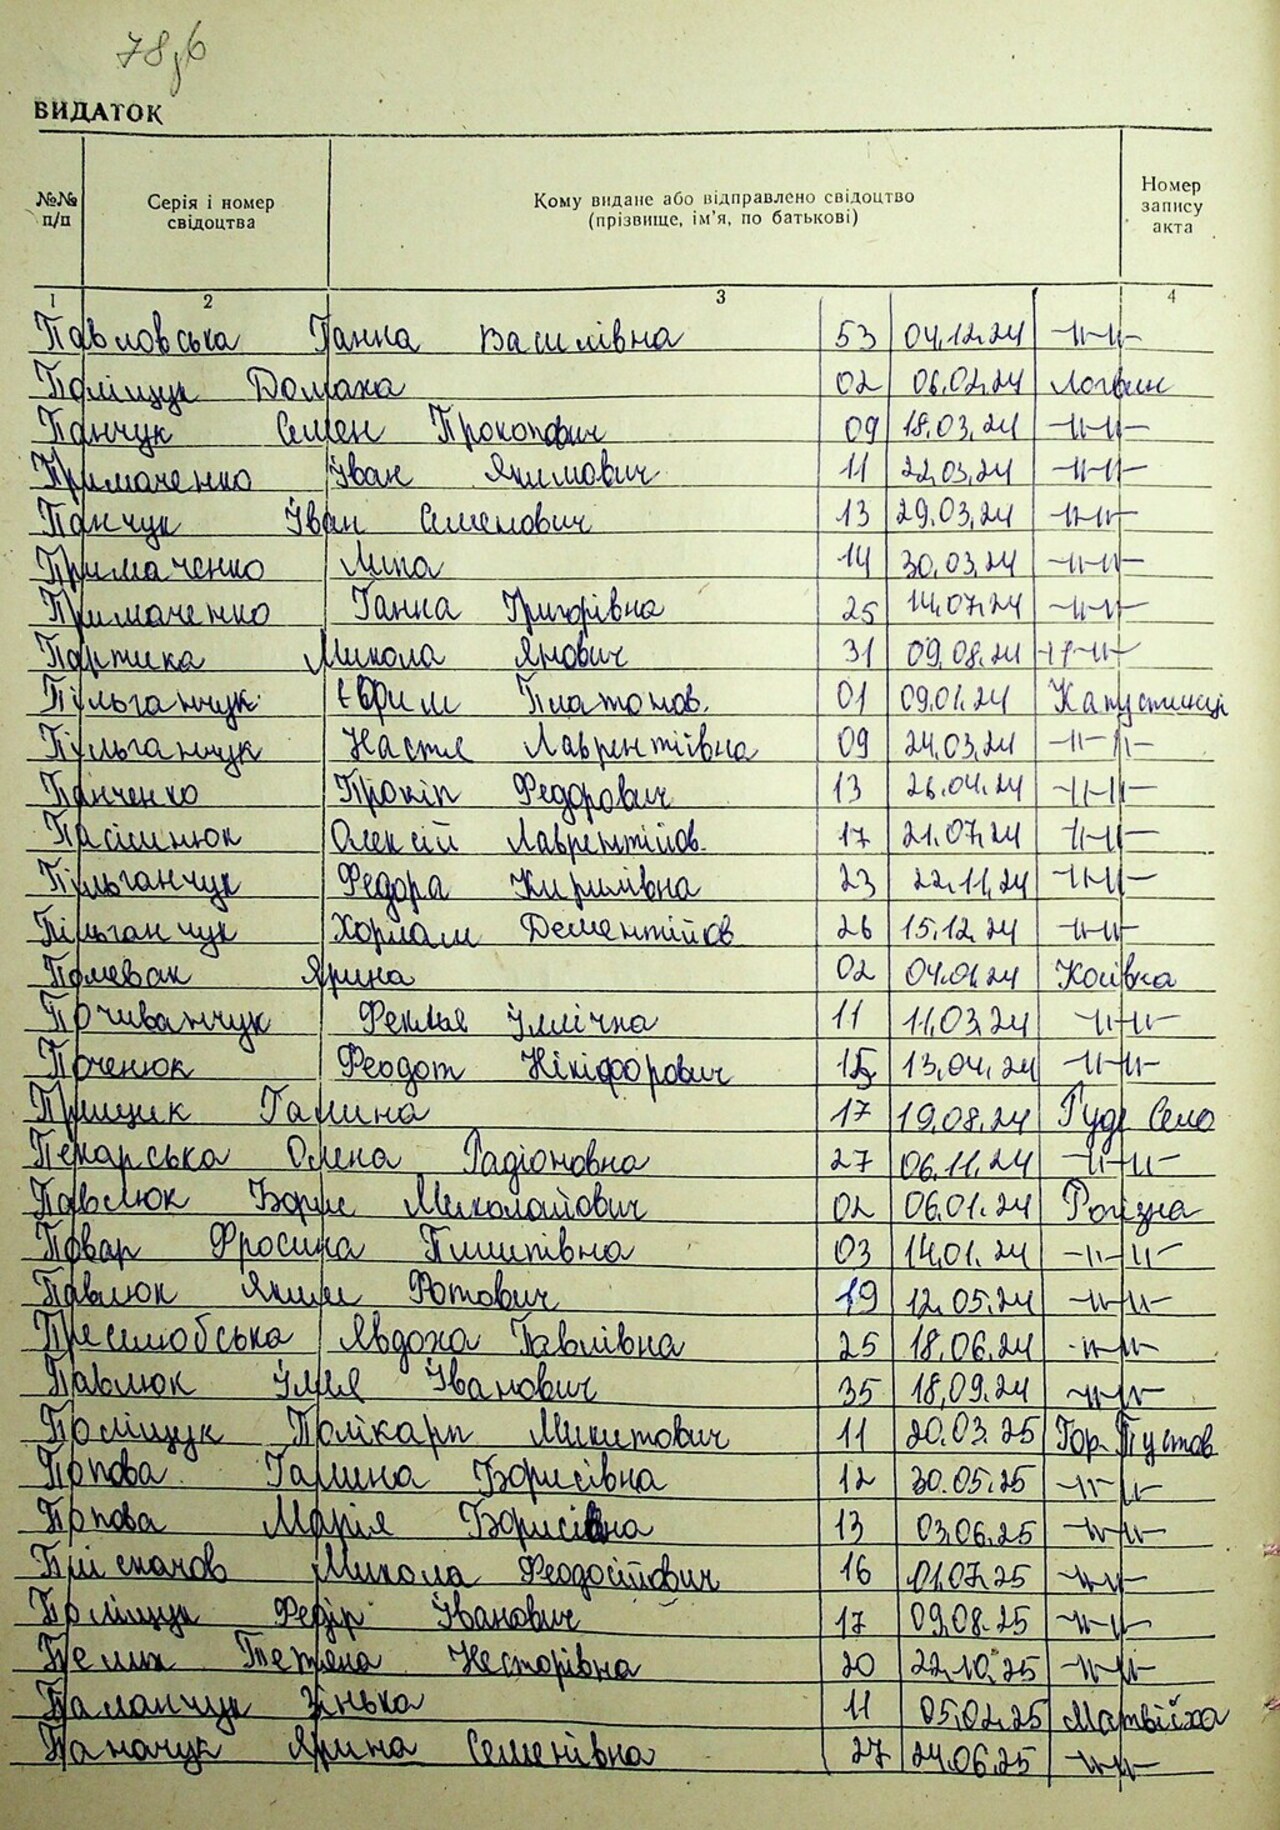 78зб
ВИДАТОК
№№ п/п Серія і номер свідоцтва Кому видане або відправлено свідоцтво (прізвище, ім'я, по батькові) Номер запису акта
1 2 3 4
Павловська Ганна Василівна 53 04.12.24 -//-//-
Поліщук Домаха 02 06.02.24 Логвин
Панчук Семен Прокопович 09 18.03.24 -//-//-
Примаченко Іван Якимович 11 22.03.24 -//-//-
Панчук Іван Семенович 13 29.03.24 -//-//-
Примаченко Липа 14 30.03.24 -//-//-
Примаченко Ганна Григорівна 25 14.07.24 -//-//-
Партика Микола Янович 31 09.08.24 -//-//-
Пільганчук Єфим Платонов. 01 09.01.24 Капустинці
Пільганчук Настя Лаврентіївна 09 24.03.24 -//-//-
Панченко Прокіп Федорович 13 26.04.24 -//-//-
Пасічнюк Олексій Лаврентійов. 17 21.07.24 -//-//-
Пільганчук Федора Кирилівна 23 22.11.24 -//-//-
Пільганчук Харлам Дементійов 26 15.12.24 -//-//-
Ярина 02 04.01.24 Косівка
Почиванчук Фекля Іллічна 11 11.03.24 -//-//-
Поченюк Феодот Нікіфорович 15 13.04.24 -//-//-
Прищик Галина 17 19.08.24 Руде Село
Пекарська Олена Радіоновна 27 06.11.24 -//-//-
Павлюк Борис Миколайович 02 06.01.24 Рогізна
Повар Фросина Пилипівна 03 14.01.24 -//-//-
Павлюк Яким Фотович 19 12.05.24 -//-//-
Явдоха Павлівна 25 18.06.24 -//-//-
Павлюк Ілля Іванович 35 18.09.24 -//-//-
Поліщук Полікарп Микитович 11 20.03.25 Гор. Пустов
Попова Галина Борисівна 12 30.05.25 -//-//-
Попова Марія Борисівна 13 03.06.25 -//-//-
Микола Феодосійович 16 01.07.25 -//-//-
Поліщук Федір Іванович 17 09.08.25 -//-//-
Тетяна Несторівна 20 22.10.25 -//-//-
Паманчук Зінька 11 05.02.25 Матвіїха
Паначук Ярина Семенівна 27 24.06.25 -//-//-